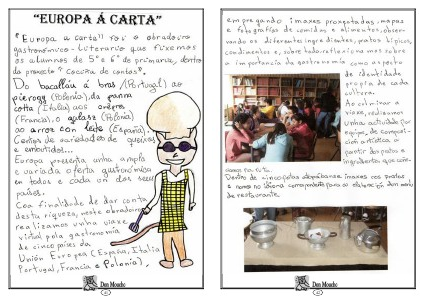 "EUROPA Á CARTA"
"Europa a carta" foi o obradoiro
gastronómico-literario que fixemos
os alumnos de 5º e 6º de primaria, dentro
do proxecto "Cociña de contos".
Do bacallau á bras (Portugal) ao
pierogy (Polonia), da panna
cotta (Italia) aos crêpes
(Francia), o gulasz (Polonia)
ao arroz con leite (España).
Centos de variedades de queixos
e embutidos...
Europa presenta unha ampla
e variada oferta gastronómica
en todos e cada un dos seus
países.
Coa finalidade de dar conta
desta riqueza, neste obradoiro
realizamos unha viaxe
virtual pola gastronomía
de cinco países da
Unión Europea (España, Italia
Portugal, Francia e Polonia),
Don Mouche
empregando imaxes proxectadas, mapas
e fotografías de comidas e alimentos, observando
os diferentes ingredientes, pratos típicos,
condimentos e, sobre todo, reflexionamos sobre
a importancia da gastronomía como aspecto
de identidade
propia de cada
cultura.
Ao culminar a
viaxe, realizamos
unha actividade por
equipo, de composición
artística a
partir dos pratos e
ingredientes que coñe-
Dentro de cinco pratos
e nomes no idioma correspondente para a elaboración dun menú
de restaurante.
Don Mouche